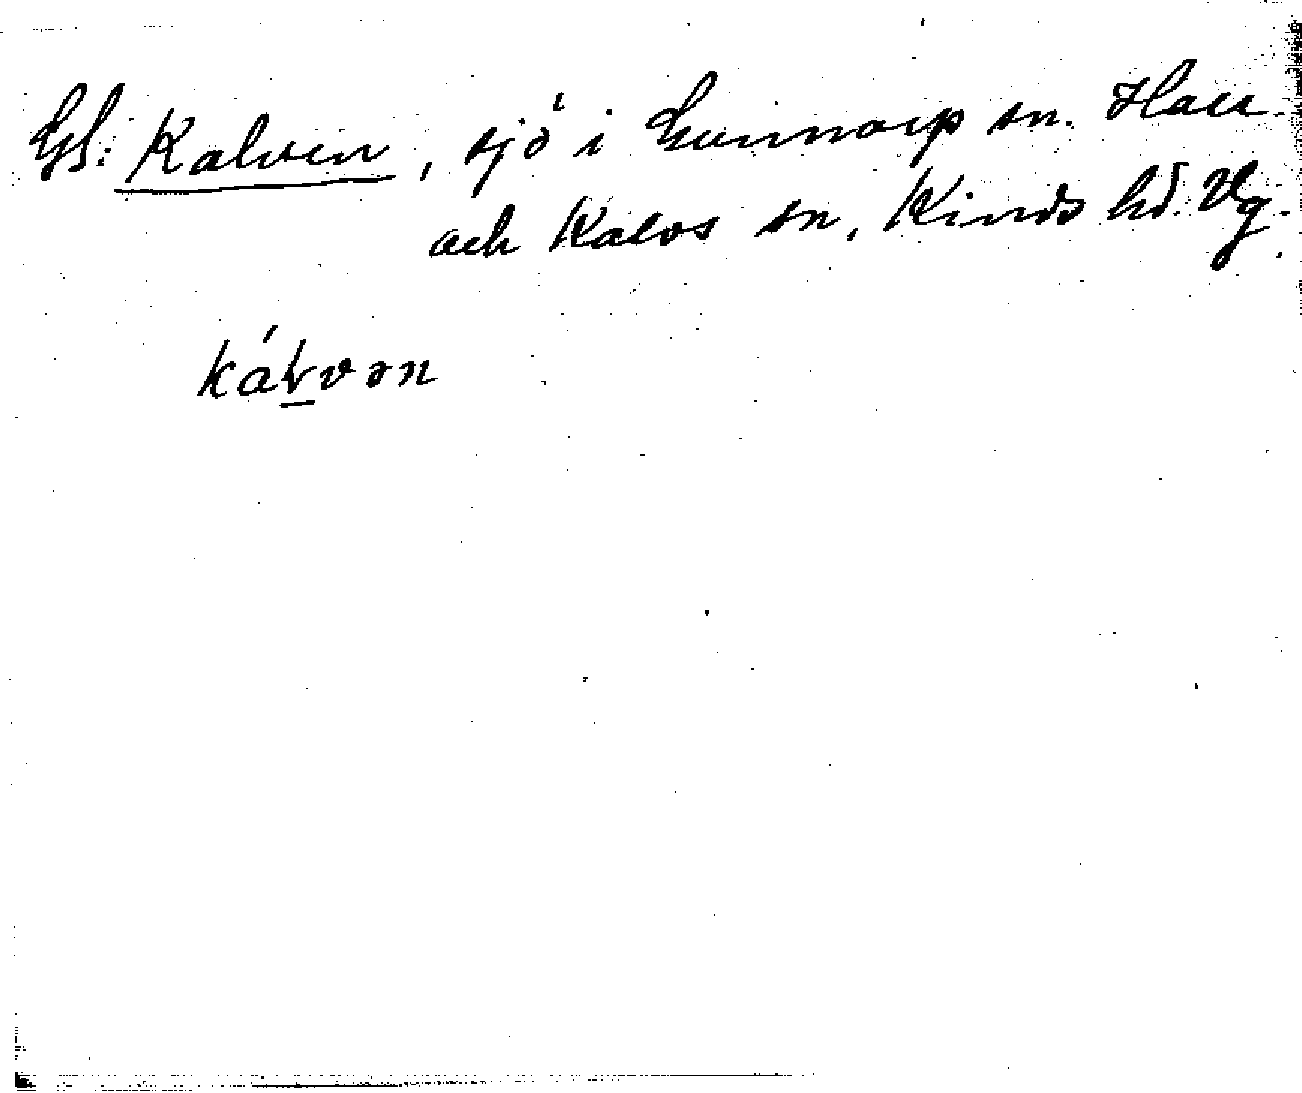 Gl. Kalven, sjö i Gunnarp sn. Hall
och Kalvs sn, Kinds hd. Vg.
kálvən